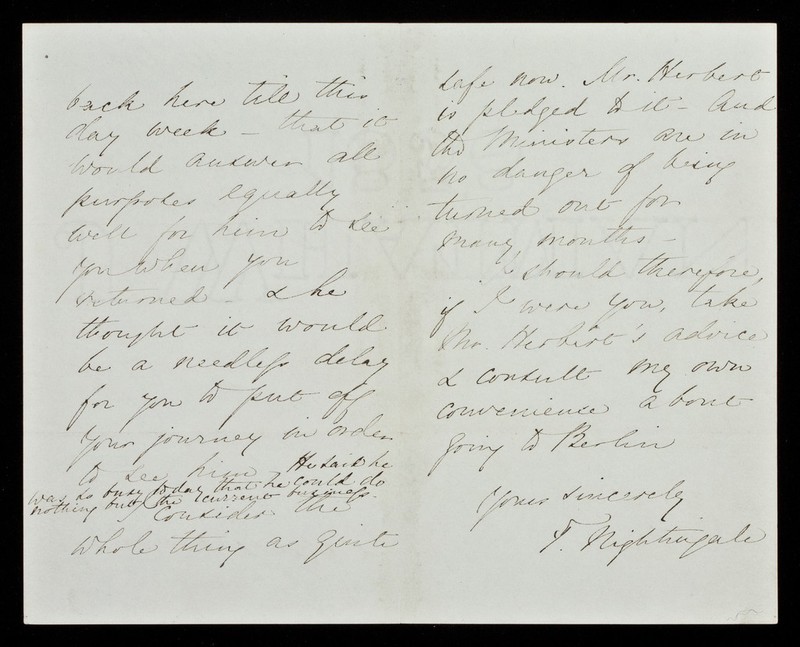 back here till this
day week - that it
would answer all
purposes equally
well for him to see
you when you
returned - & he
thought it would
be a needless delay
for you to put off
your journey in order
to see him - He said he
was so busy today that he could do
nothing but the current business.
I consider the
whole thing as quite
safe now. Mr. Herbert
is pledged to it - And
the Ministers are in
no danger of being
turned out for
many months -
I should therefore,
if I were you, take
Mr. Herbert's advice
& consult my own
convenience about
going to Berlin
Yours sincerely
F. Nightingale